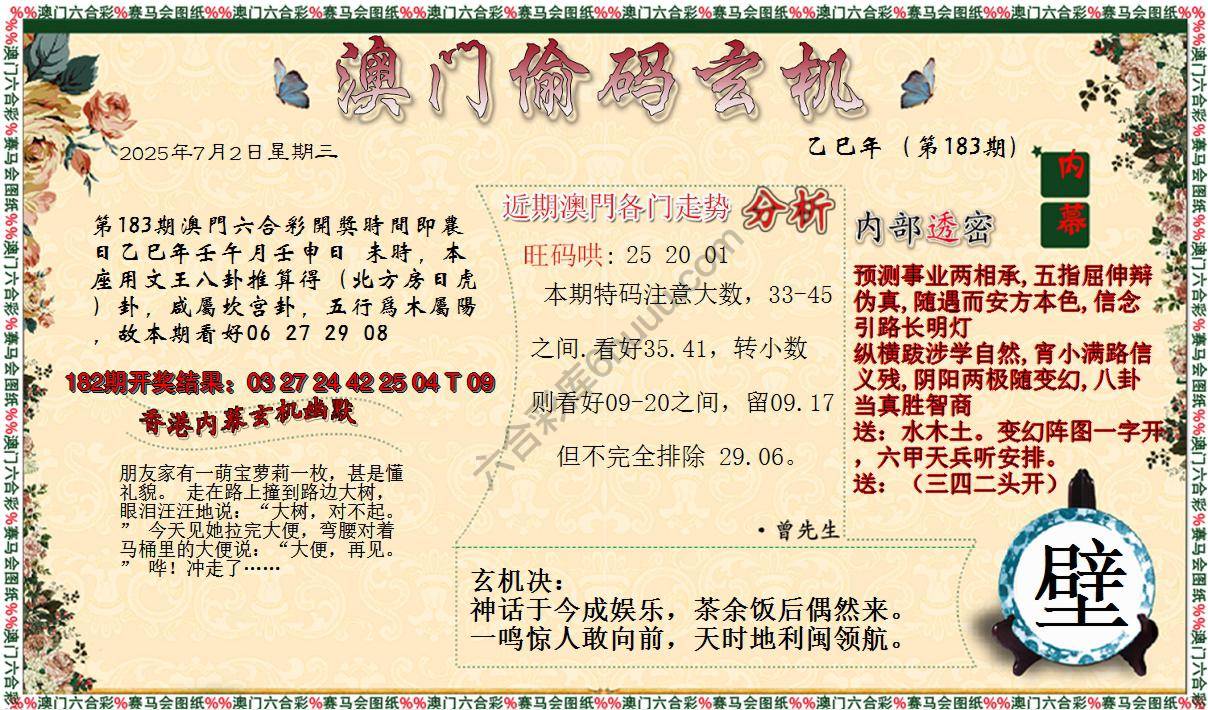 %%澳门六合彩%赛马会图纸%%澳门六合彩%赛马会图纸%%澳门六合彩%赛马会图纸%%澳门六合彩%赛马会图纸%%澳门六合彩%赛马会图纸%%澳门六合彩%赛马会图纸%%
澳门偷码玄机
2025年7月2日星期三
乙巳年（第183期）
内
幕
第183期澳門六合彩開獎時間即農
日乙巳年壬午月壬申日 未時，本
座用文王八卦推算得（北方房日虎
）卦，咸屬坎宫卦，五行爲木屬陽
，故本期看好06 27 29 08
182期开奖结果：03 27 24 42 25 04 T 09
香港内幕玄机幽默
朋友家有一萌宝萝莉一枚，甚是懂
礼貌。 走在路上撞到路边大树，
眼泪汪汪地说：“大树，对不起。
” 今天见她拉完大便，弯腰对着
马桶里的大便说：“大便，再见。
” 哗！冲走了……
近期澳門各门走势 分析
旺码哄: 25 20 01
本期特码注意大数，33-45
之间.看好35.41，转小数
则看好09-20之间，留09.17
但不完全排除 29.06。
·曾先生
内部透密
预测事业两相承,五指屈伸辩
伪真,随遇而安方本色,信念
引路长明灯
纵横跋涉学自然,宵小满路信
义残,阴阳两极随变幻,八卦
当真胜智商
送：水木土。变幻阵图一字开
，六甲天兵听安排。
送：（三四二头开）
玄机决：
神话于今成娱乐，茶余饭后偶然来。
一鸣惊人敢向前，天时地利闽领航。
壁
%%澳门六合彩%赛马会图纸%%澳门六合彩%赛马会图纸%%澳门六合彩%赛马会图纸%%澳门六合彩%赛马会图纸%%澳门六合彩%赛马会图纸%%澳门六合彩%赛马会图纸%%